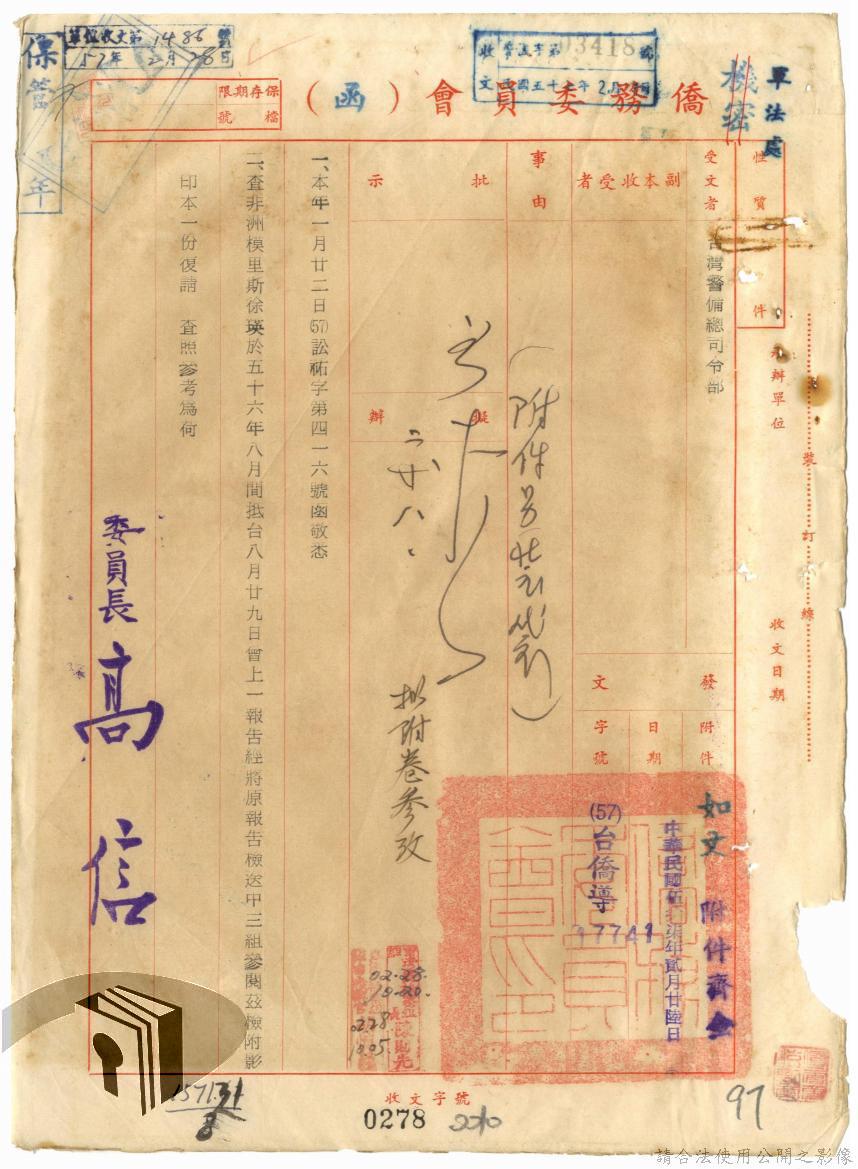 軍法處
機密
僑務委員會（函）
保存期限
檔號
單位收文第1486號
57年2月28日
收文
03418
性質
件
承辦單位
收文日期
裝訂線
受文者
台灣警備總司令部
副本收受者
發文
附件
日期
字號
如文
附件齊全
中華民國伍拾柒年貳月廿陸日
(57)台僑導
17741
事由
批示
擬辦
二廿八、
擬附卷參考
一、本年一月廿二日(57)訟祐字第四一六號函敬悉
二、查非洲模里斯徐瑛於五十六年八月間抵台八月廿九日曾上一報告經將原報告檢送甲三組參閱茲檢附影
印本一份復請　查照參考為何
委員長高信
02.28.
02.28
10.05.
收文字號
0278
97
請合法使用公開之影像